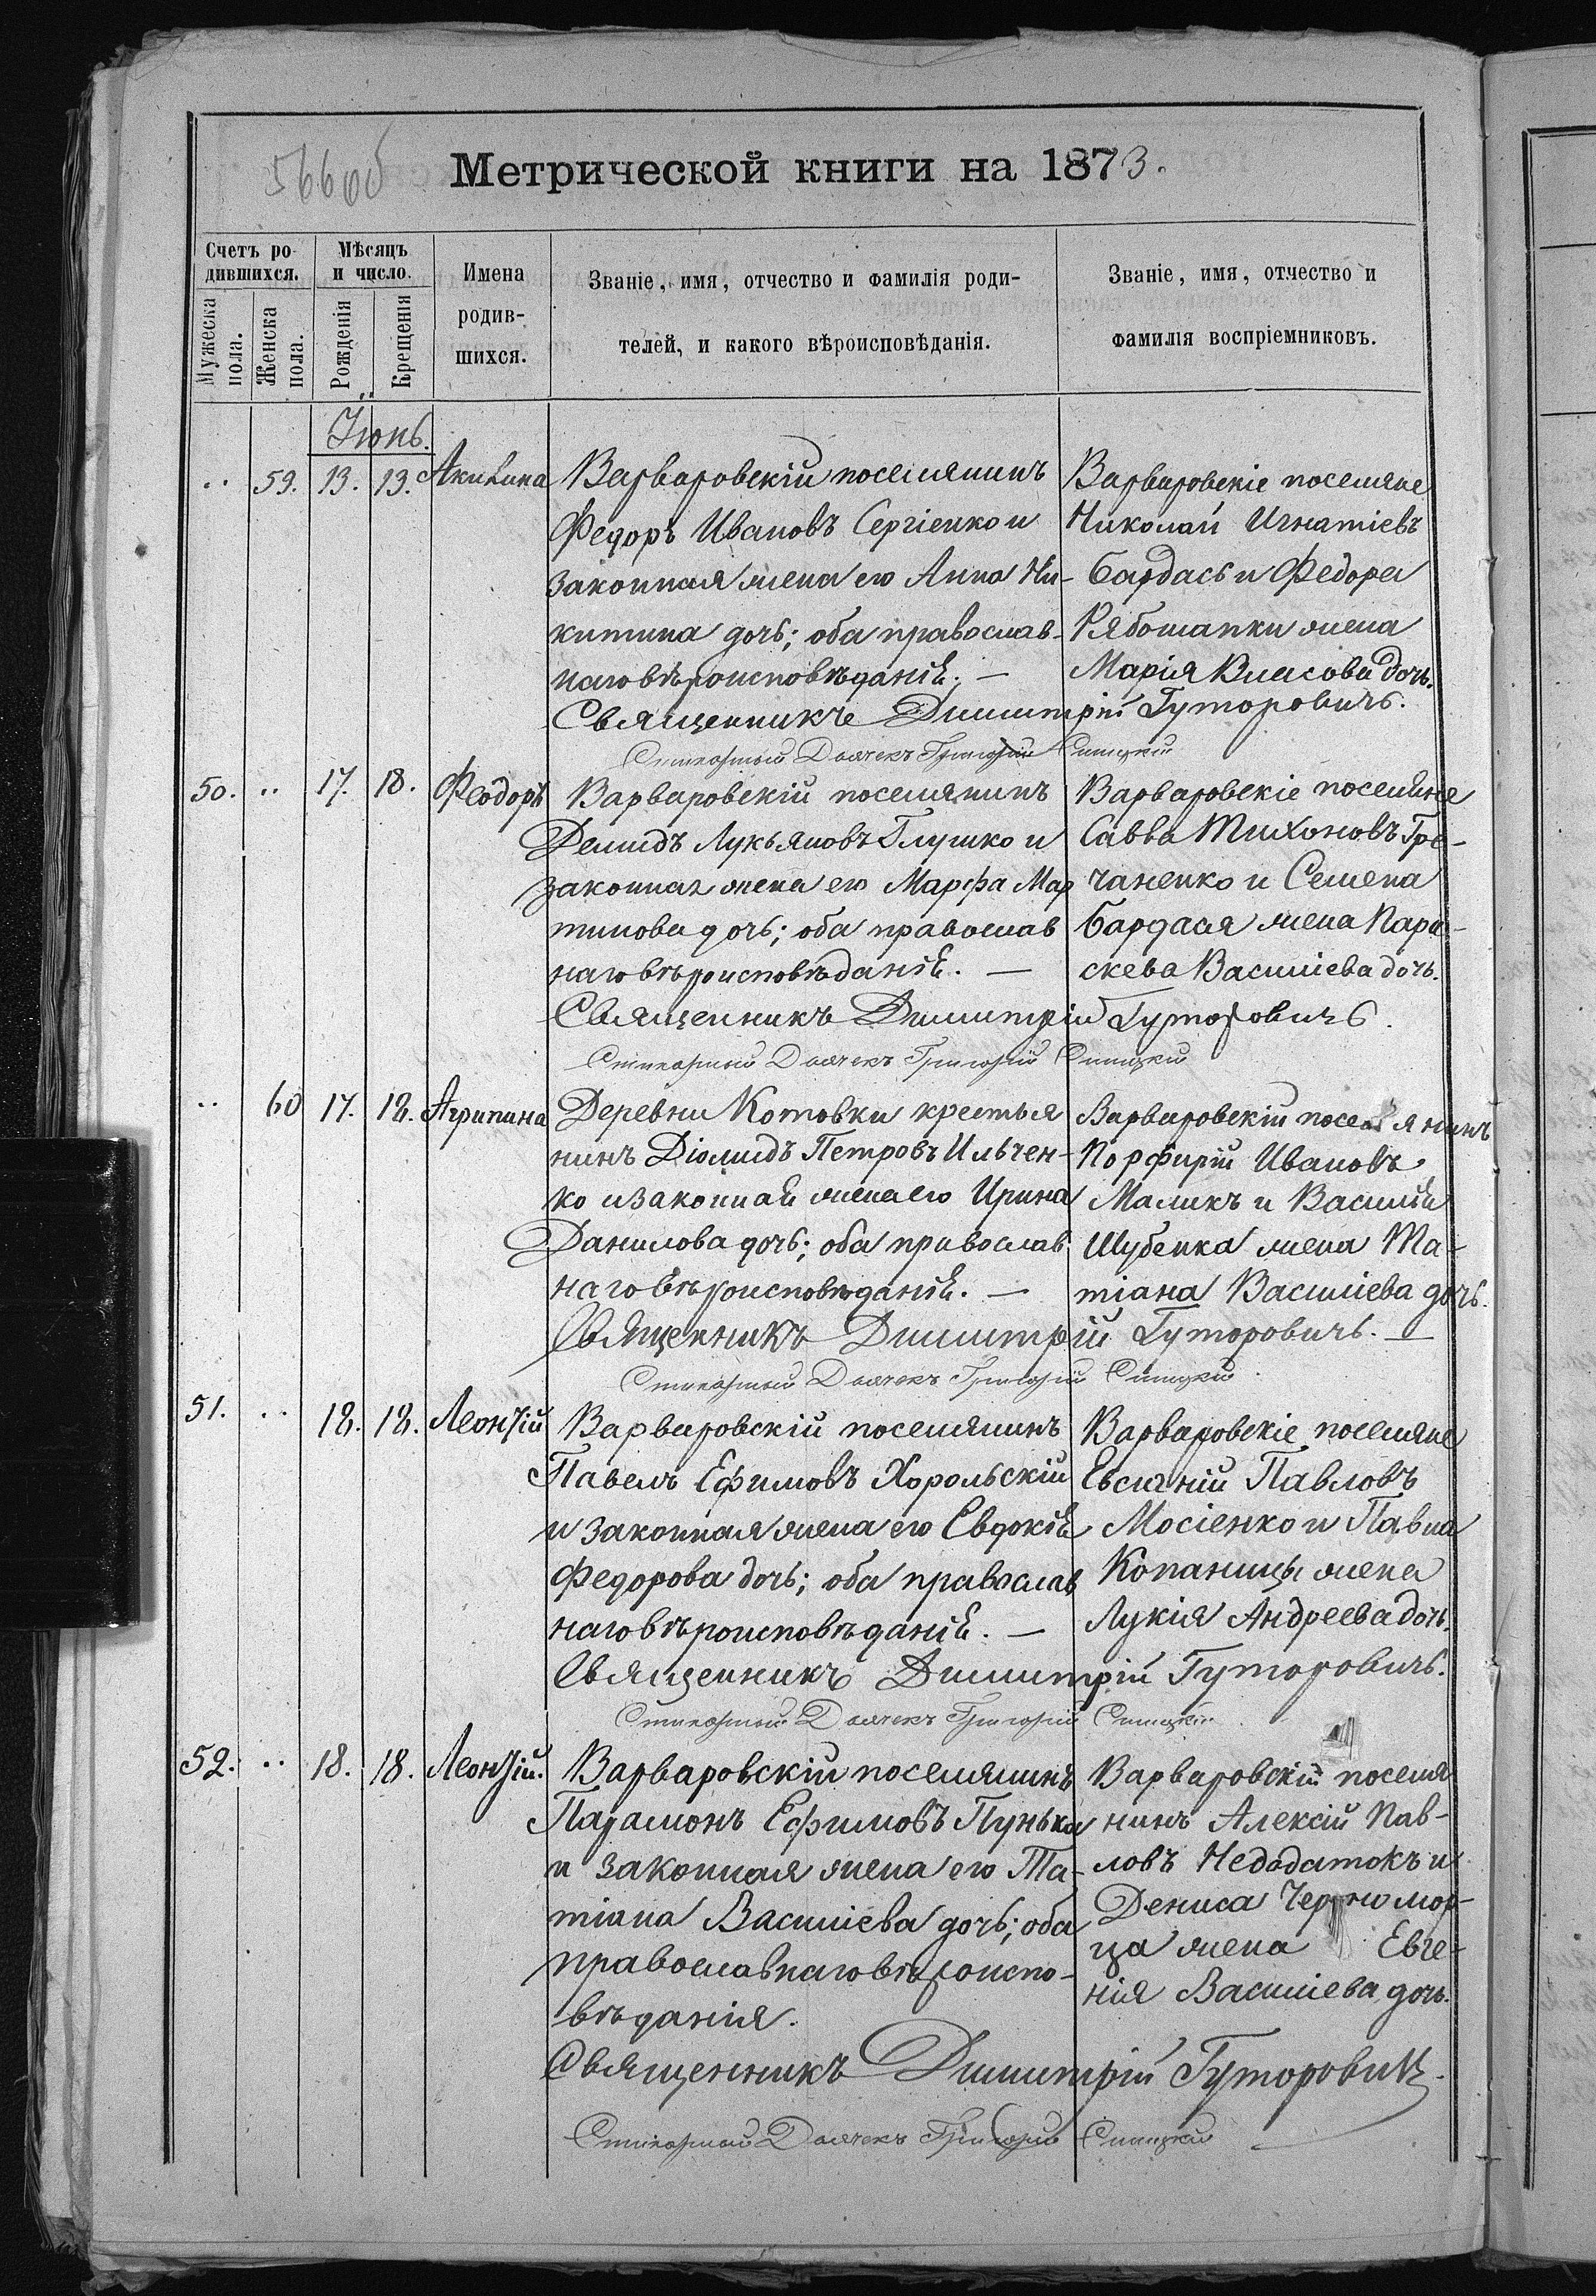 566об
Метрической книги на 1873.
Счетъ ро-
дившихся.
Мужеска
пола.
Женска
пола.
Мѣсяцъ
и число.
Рожденія
Крещенія
Имена
родив-
шихся.
Званіе, имя, отчество и фамилія роди-
телей, и какого вѣроисповѣданія.
Званіе, имя, отчество и
фамилія воспріемниковъ.
Іюнь.
.. 59. 13. 13. Акилина
Варваровскій поселянинъ
Федоръ Ивановъ Сергіенко и
законная жена его Анна Ни-
китина дочь; оба православ-
наго вѣроисповѣданія. —
Варваровскіе поселяне
Николай Игнатіевъ
Бардась и Федора
Рябошапки жена
Марія Власова дочь.
Священникъ Димитрій Гуторовичъ.
Стихарный Дьячекъ Григорій
50. .. 17. 18. Феодоръ
Варваровскій поселянинъ
Демидъ Лукьяновъ Глушко и
законная жена его Марфа Мар
тинова дочь; оба православ
наго вѣроисповѣданія. —
Варваровскіе поселяне
Савва Тихоновъ Гре-
чаненко и Семена
Бардася жена Пара-
скева Василіева дочь.
Священникъ Димитрій Гуторовичъ.
Стихарный Дьячекъ Григорій
.. 60 17. 18. Агрипина
Деревни Котовки крестья
нинъ Діомидъ Петровъ Ильчен-
ко и законная жена его Ирина
Данилова дочь; оба православ
наго вѣроисповѣданія. —
Варваровскій поселянинъ
Порфирій Ивановъ
Маликъ и Василія
Шубенка жена Та-
тіана Василіева дочь.
Священникъ Димитрій Гуторовичъ. —
Стихарный Дьячекъ Григорій
51. .. 18. 18. Леонтій
Варваровскій поселянинъ
Павелъ Ефимовъ Хорольскій
и законная жена его Евдокія
Федорова дочь; оба православ
наго вѣроисповѣданія. —
Варваровскіе поселяне
Евсигній Павловъ
Мосіенко и Павла
Копаницы жена
Лукія Андреева дочь.
Священникъ Димитрій Гуторовичъ.
Стихарный Дьячекъ Григорій
52. .. 18. 18. Леонтій.
Варваровскій поселянинъ
Парамонъ Ефимовъ Пунька
и законная жена его Та-
тіана Василіева дочь; оба
православнаго вѣроиспо-
вѣданія.
Варваровскій поселя
нинъ Алексій Пав-
ловъ Недодатокъ и
Дениса Черномор-
ца жена Евге-
нія Василіева дочь.
Священникъ Димитрій Гуторовичъ.
Стихарный Дьячекъ Григорій